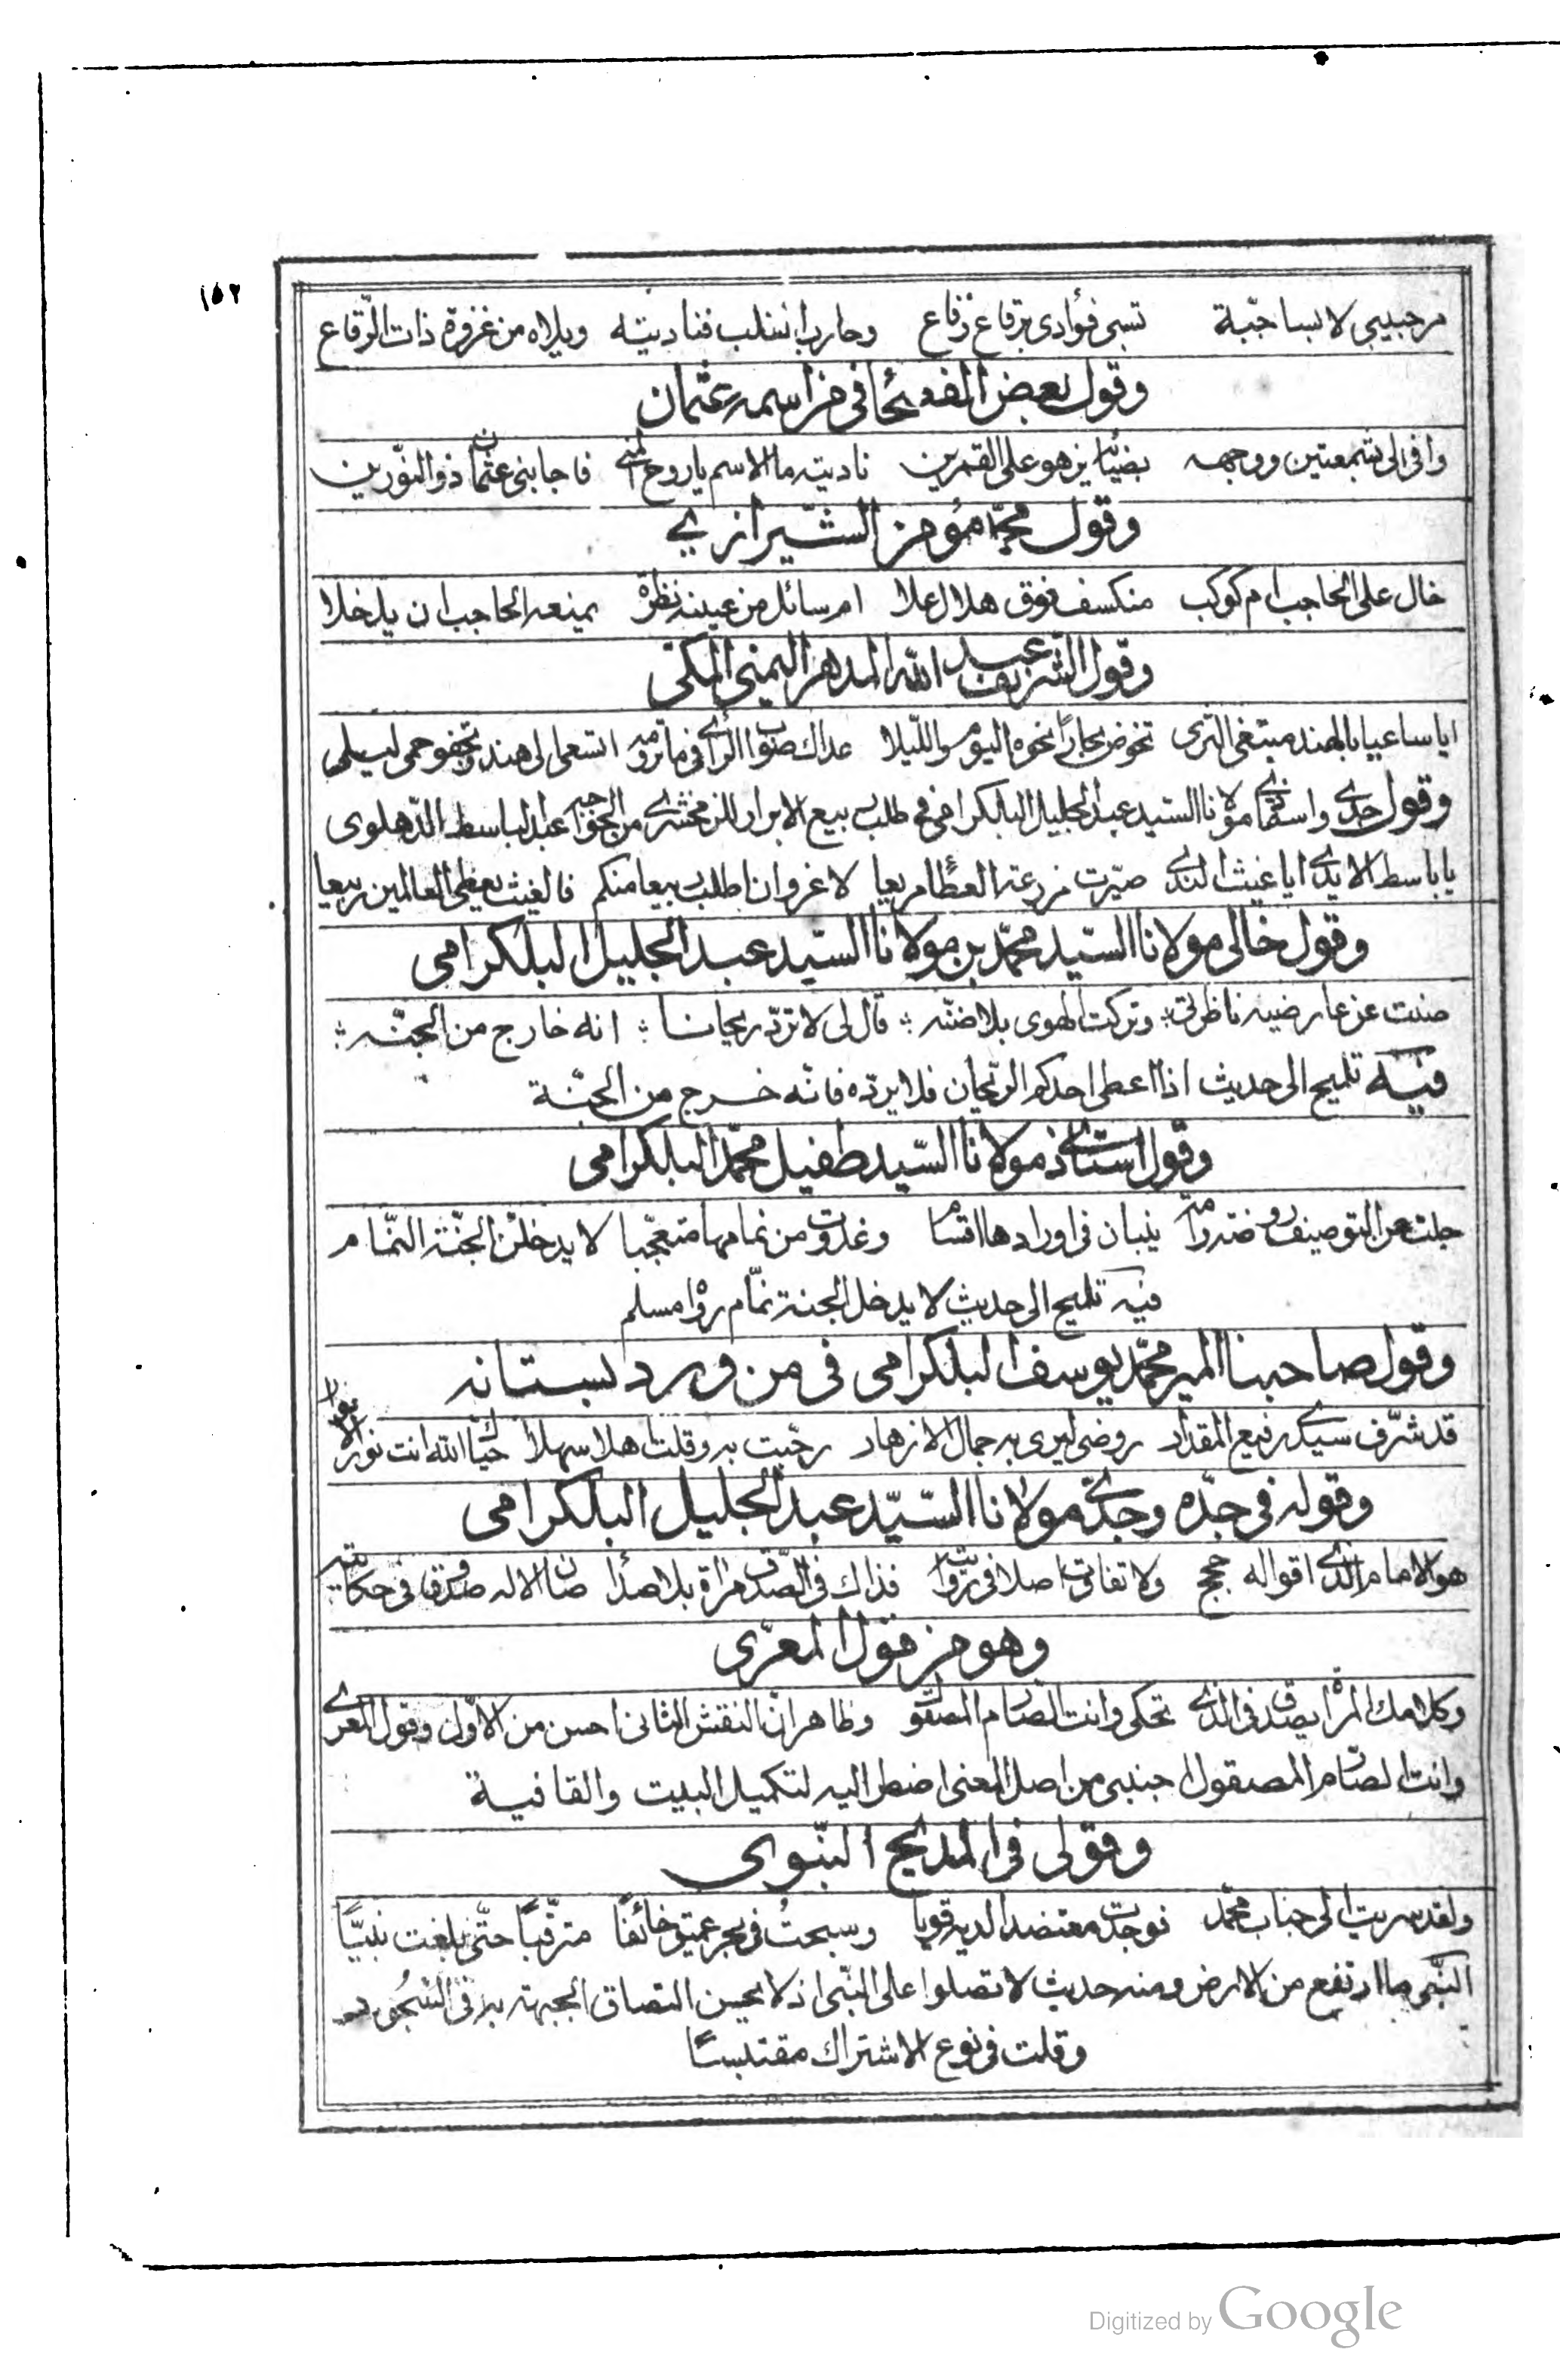 ١٥٢
مر حبيبي لابسا جبّة تسبى فؤادى برقاع رقاع وحارب بالسلب فناديته ويلاه من غزوة ذات الرّقاع
وقول بعض الفصحا فى من اسمه عثمان
وافى الى بشمعتين ووجهه بضيائه يزهو على القمرين ناديته ما الاسم يا روح المنى فاجابنى عثمان ذو النّورين
وقول محمّد مؤمن الشّيرازي
خال على الحاجب ام كوكب منكسف فوق هلال علا ام سائل من عينه نظرة يمنعه الحاجب ان يدخلا
وقول الشريف عبد الله المدهر اليمنى المكى
ايا ساعيا بالهند مبتغى الثرى تخوض بحارًا نحوه اليوم والليلا عداك صواب الرأى فى ما ترومه اتسعى الى هند وتجفو حمى ليلى
وقول جدي واستاذي مولانا السيد عبد الجليل البلكرامى فى طلب ربيع الابرار للزمخشري من الخواجه عبد الباسط الدّهلوى
يا باسط الايدي ايا غيث الندي صيّرت مزرعة العطاء مريعا لا غرو ان اطلب ربيعا منكم فالغيث يعطى العالمين ربيعا
وقول خالى مولانا السّيد محمّد بن مولانا السّيد عبد الجليل البلكرامى
صنت عن عارضيه ناظرتى وتركت الهوى بلا ضنّه قال لى لا تردّ ريحانا انه خارج من الجنّه
فيه تلميح الى حديث اذا اعطى احدكم الرّيحان فلا يردّه فانّه خرج من الجنّة
وقول استاذي مولانا السّيد طفيل محمّد البلكرامى
جلت عن التوصيف روضته وما ينبان فى اورادها اقسام وغدوت من نمامها متعجّبا لا يدخلن الجنّة النّمام
فيه تلميح الى حديث لا يدخل الجنة نمّام رواه مسلم
وقول صاحبنا المير محمّد يوسف البلكرامى فى من ورد بستانه
قد شرّف سيدي رفيع المقدار روضى ليرى به جمال الازهار رحّبت به وقلت اهلا سهلا حيّاك الله انت نور الانوار
وقوله فى جدّه وجدّي مولانا السّيّد عبد الجليل البلكرامى
هو الامام الذي اقواله حجج ولا تفاوت اصلا فى روايته فذاك فى الصّدق مرأة بلا صدأ صان الاله صدوقا فى حكايته
وهو من قول المعرّى
وكلامك المرأة يصدق فى الذي تحكى وانت الصّارم المصقول وظاهر انّ النقش الثانى احسن من الاوّل وقول المعري
وانت الصّارم المصقول اجنبى من اصل المعنى اضطر اليه لتكميل البيت والقافية
وقولى فى المديح النّبوى
ولقد سريت الى جناب محمّد فوجدت معتضدا لديه قويا وسبحتُ فى بحر عميق خائفًا مترقّبًا حتّى بلغت نبيًّا
النّبى ما ارتفع من الارض ومنه حديث لا تصلوا على النّبى اذ لا يحسن التصاق الجبهة به فى السّجود
وقلت فى نوع الاشتراك مقتبسًا
Digitized by Google